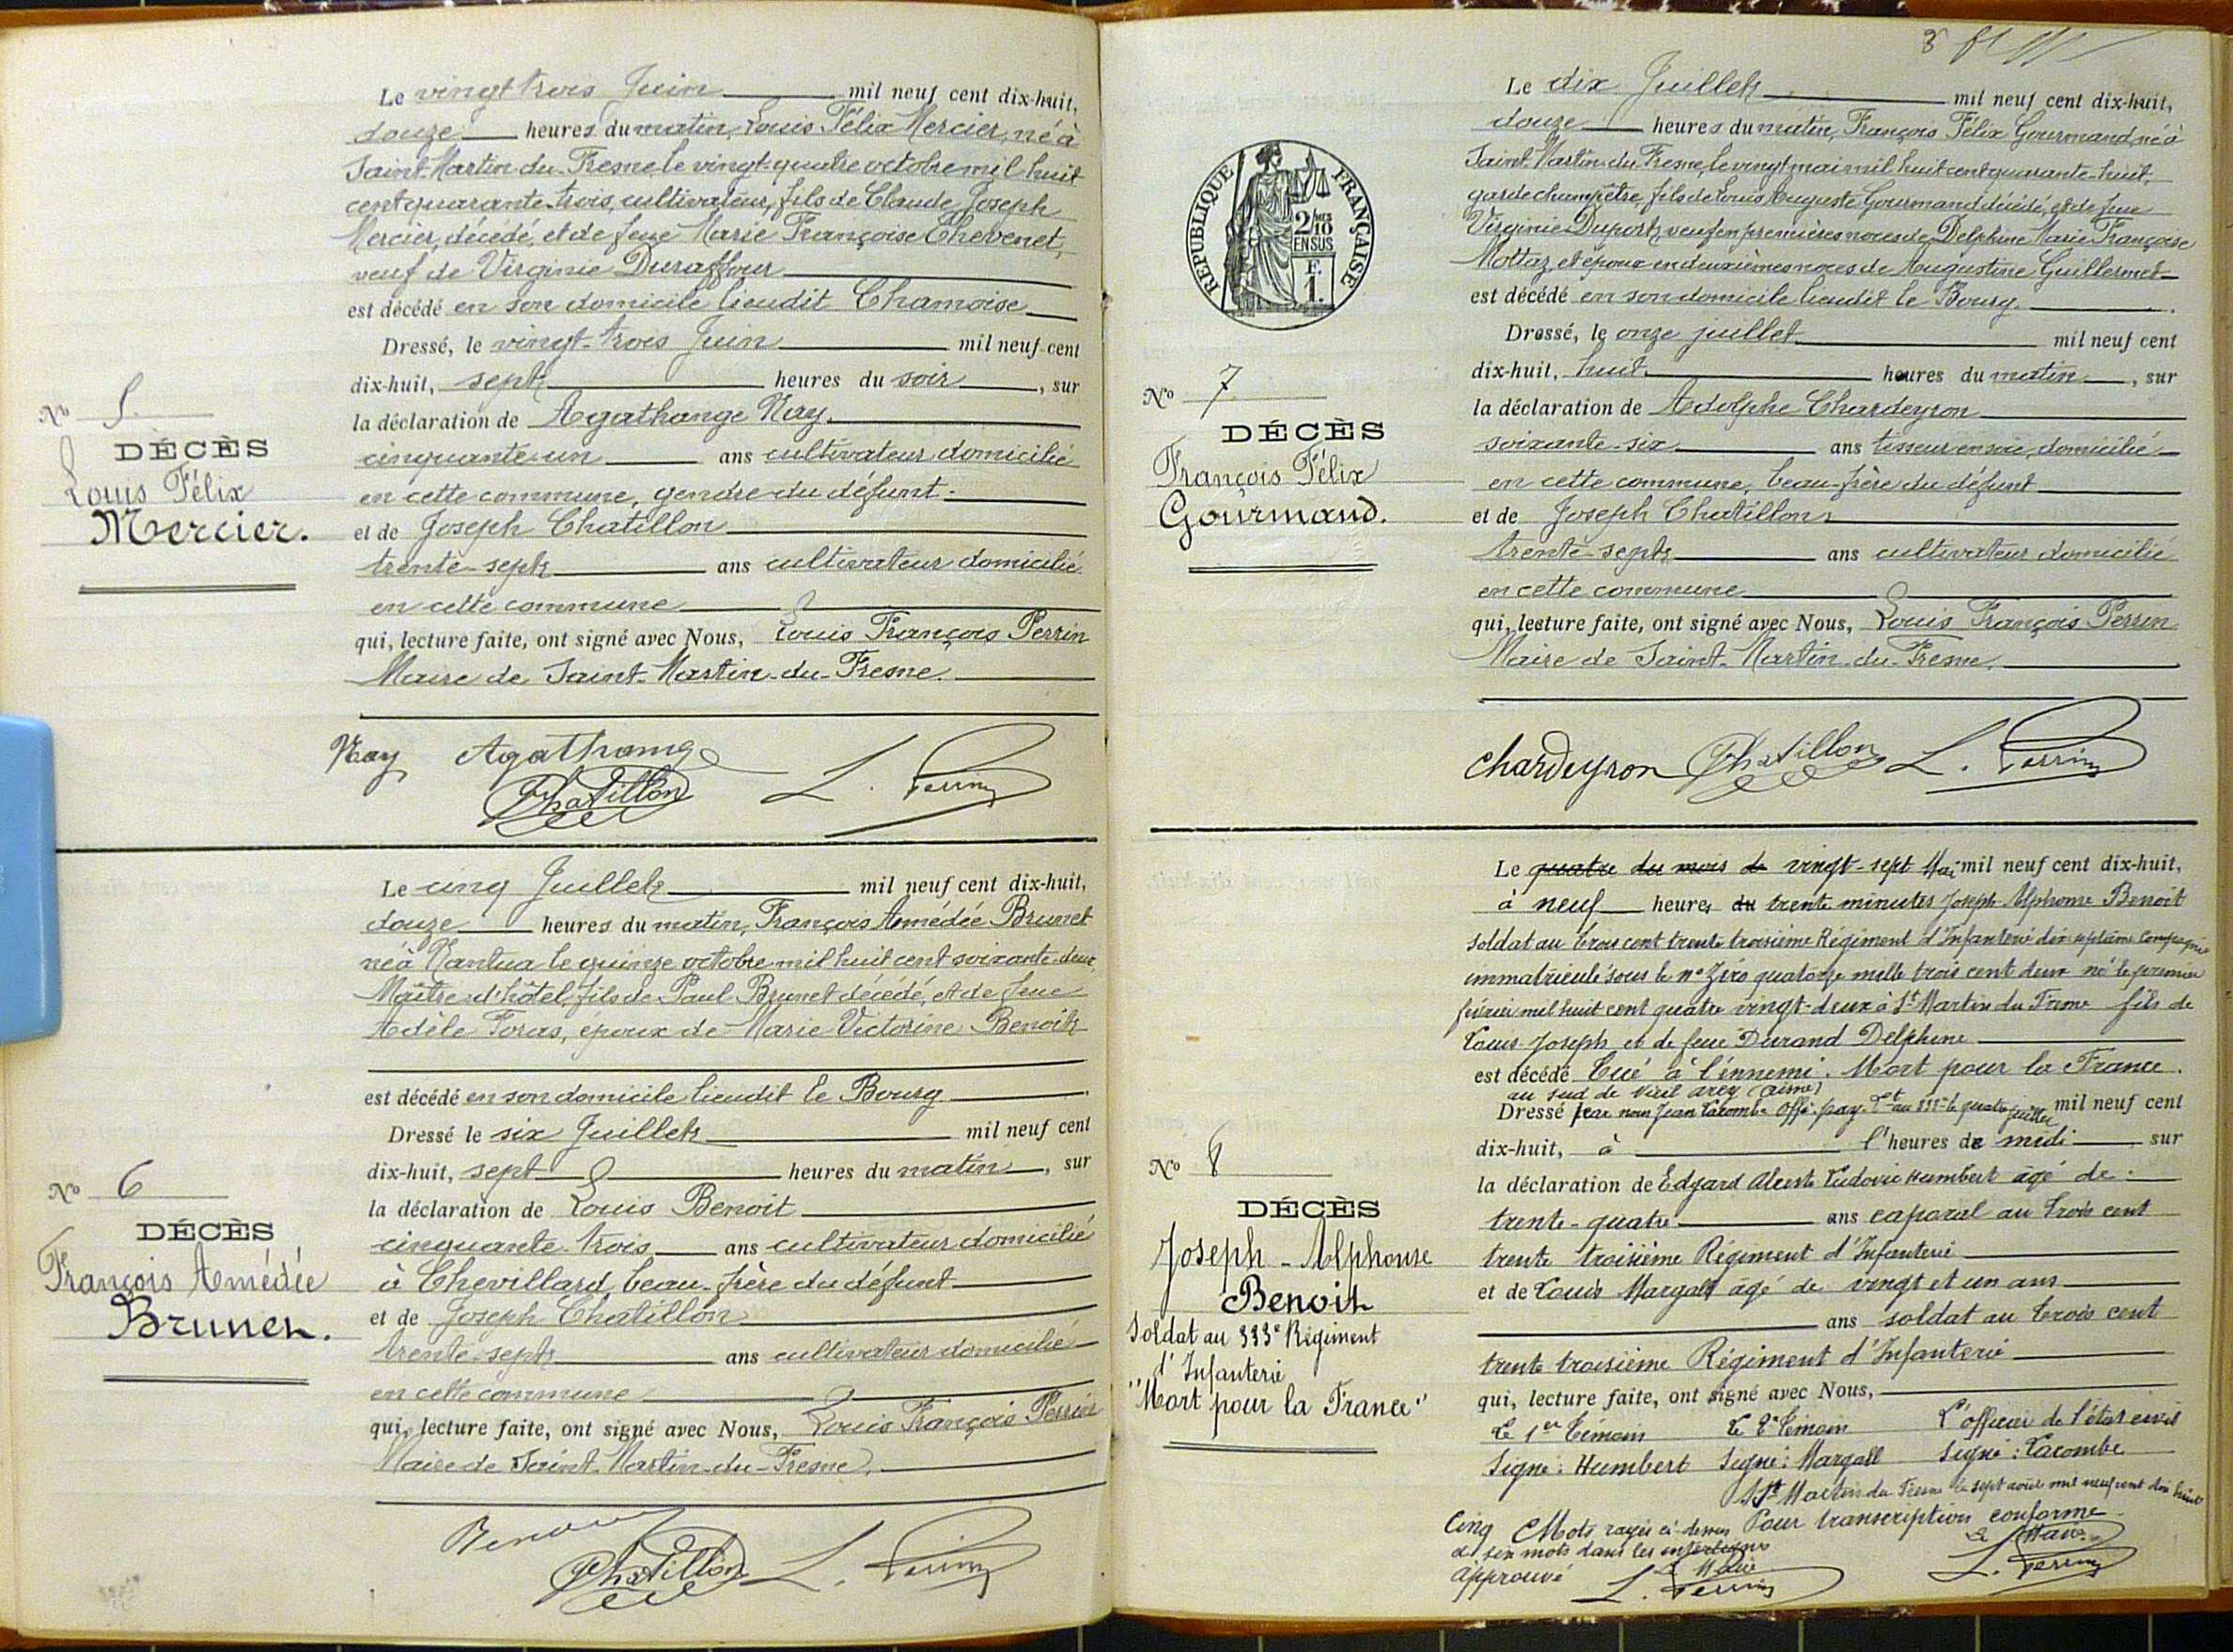 Le vingt trois Juin mil neuf cent dix-huit,
douze heures du matin, Louis Félix Mercier, né à
Saint-Martin du-Fresne le vingt-quatre octobre mil huit
cent quarante-trois, cultivateur, fils de Claude Joseph
Mercier, décédé, et de feue Marie Françoise Chevenet,
veuf de Virginie Duraffour
est décédé en son domicile lieudit Chamoise
Dressé, le vingt-trois Juin mil neuf cent
dix-huit, sept heures du soir, sur
la déclaration de Agathange Nay,
cinquante-un ans cultivateur domicilié
en cette commune, gendre du défunt
et de Joseph Chatillon
trente-sept ans cultivateur domicilié
en cette commune
qui, lecture faite, ont signé avec Nous, Louis François Perrin
Maire de Saint-Martin-du-Fresne.
Nº 5.
DÉCÈS
Louis Félix
Mercier.
Nay Agathange
Chatillon L. Perrin
Le cinq Juillet mil neuf cent dix-huit,
douze heures du matin, François Amédée Brunet
né à Nantua le quinze octobre mil huit cent soixante-deux,
Maître d'hôtel, fils de Paul Brunet décédé, et de feue
Adèle Foras, époux de Marie Victorine Benoit
est décédé en son domicile lieudit le Bourg
Dressé le six Juillet mil neuf cent
dix-huit, sept heures du matin, sur
la déclaration de Louis Benoit
cinquante-trois ans cultivateur domicilié
à Chevillard, beau-frère du défunt
et de Joseph Chatillon
trente-sept ans cultivateur domicilié
en cette commune
qui, lecture faite, ont signé avec Nous, Louis François Perrin
Maire de Saint-Martin-du-Fresne.
Nº 6
DÉCÈS
François Amédée
Brunet.
Benoit
Chatillon L. Perrin
Le dix Juillet mil neuf cent dix-huit,
douze heures du matin, François Félix Gourmand, né à
Saint-Martin-du-Fresne, le vingt mai mil huit cent quarante-huit,
garde champêtre, fils de Louis Auguste Gourmand décédé, et de feue
Virginie Duport, veuf en premières noces de Delphine Marie Françoise
Mottaz, et époux en deuxièmes noces de Augustine Guillermet
est décédé en son domicile lieudit le Bourg.
Dressé, le onze juillet mil neuf cent
dix-huit, huit heures du matin, sur
la déclaration de Adolphe Chardeyron
soixante-six ans tisseur en soie domicilié
en cette commune, beau-frère du défunt
et de Joseph Chatillon
trente-sept ans cultivateur domicilié
en cette commune
qui, lecture faite, ont signé avec Nous, Louis François Perrin
Maire de Saint-Martin-du-Fresne.
RÉPUBLIQUE FRANÇAISE
2/10
EN SUS
F.
1.
Nº 7
DÉCÈS
François Félix
Gourmand.
Chardeyron Chatillon L. Perrin
Le quatre du mois de vingt-sept Mai mil neuf cent dix-huit,
à neuf heures du trente minutes Joseph-Alphonse Benoit
soldat au trois cent trente troisième Régiment d'Infanterie dix septième Compagnie
immatriculé sous le nº Zéro quatorze mille trois cent deux né le premier
février mil huit cent quatre vingt-deux à St Martin du Fresne fils de
Louis-Joseph et de feue Durand Delphine
est décédé Tué à l'ennemi. Mort pour la France.
au sud de Vieil arcy (Aisne)
Dressé par nous Jean Lacombe Offr. pay. au 333e le quatre juillet mil neuf cent
dix-huit, à l'heures de midi sur
la déclaration de Edgard Alceste Ludovic Humbert agé de
trente-quatre ans caporal au trois cent
trente troisième Régiment d'Infanterie
et de Louis Margall âgé de vingt et un ans
ans soldat au trois cent
trente troisième Régiment d'Infanterie
qui, lecture faite, ont signé avec Nous,
Le 1er Témoin Le 2e Témoin L'officier de l'état civil
Signé: Humbert Signé: Margall Signé: Lacombe
St Martin du Fresne le sept août mil neuf cent dix huit
Pour transcription conforme
Le Maire
L. Perrin
Cinq Mots rayés ci-dessus
et six mots dans les interlignes
approuvé Le Maire
L. Perrin
Nº 8
DÉCÈS
Joseph-Alphonse
Benoit
Soldat au 333e Régiment
d'Infanterie
"Mort pour la France"